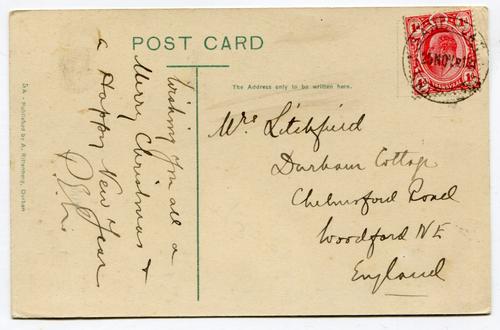 POST CARD
Wishing you all a
Merry Christmas &
a Happy New Year
The Address only to be written here.
Mrs Litchfield
Durham Cottage
Chelmsford Road
Woodford NE
England
5A - Published by A. Rittenberg, Durban
1d 1d